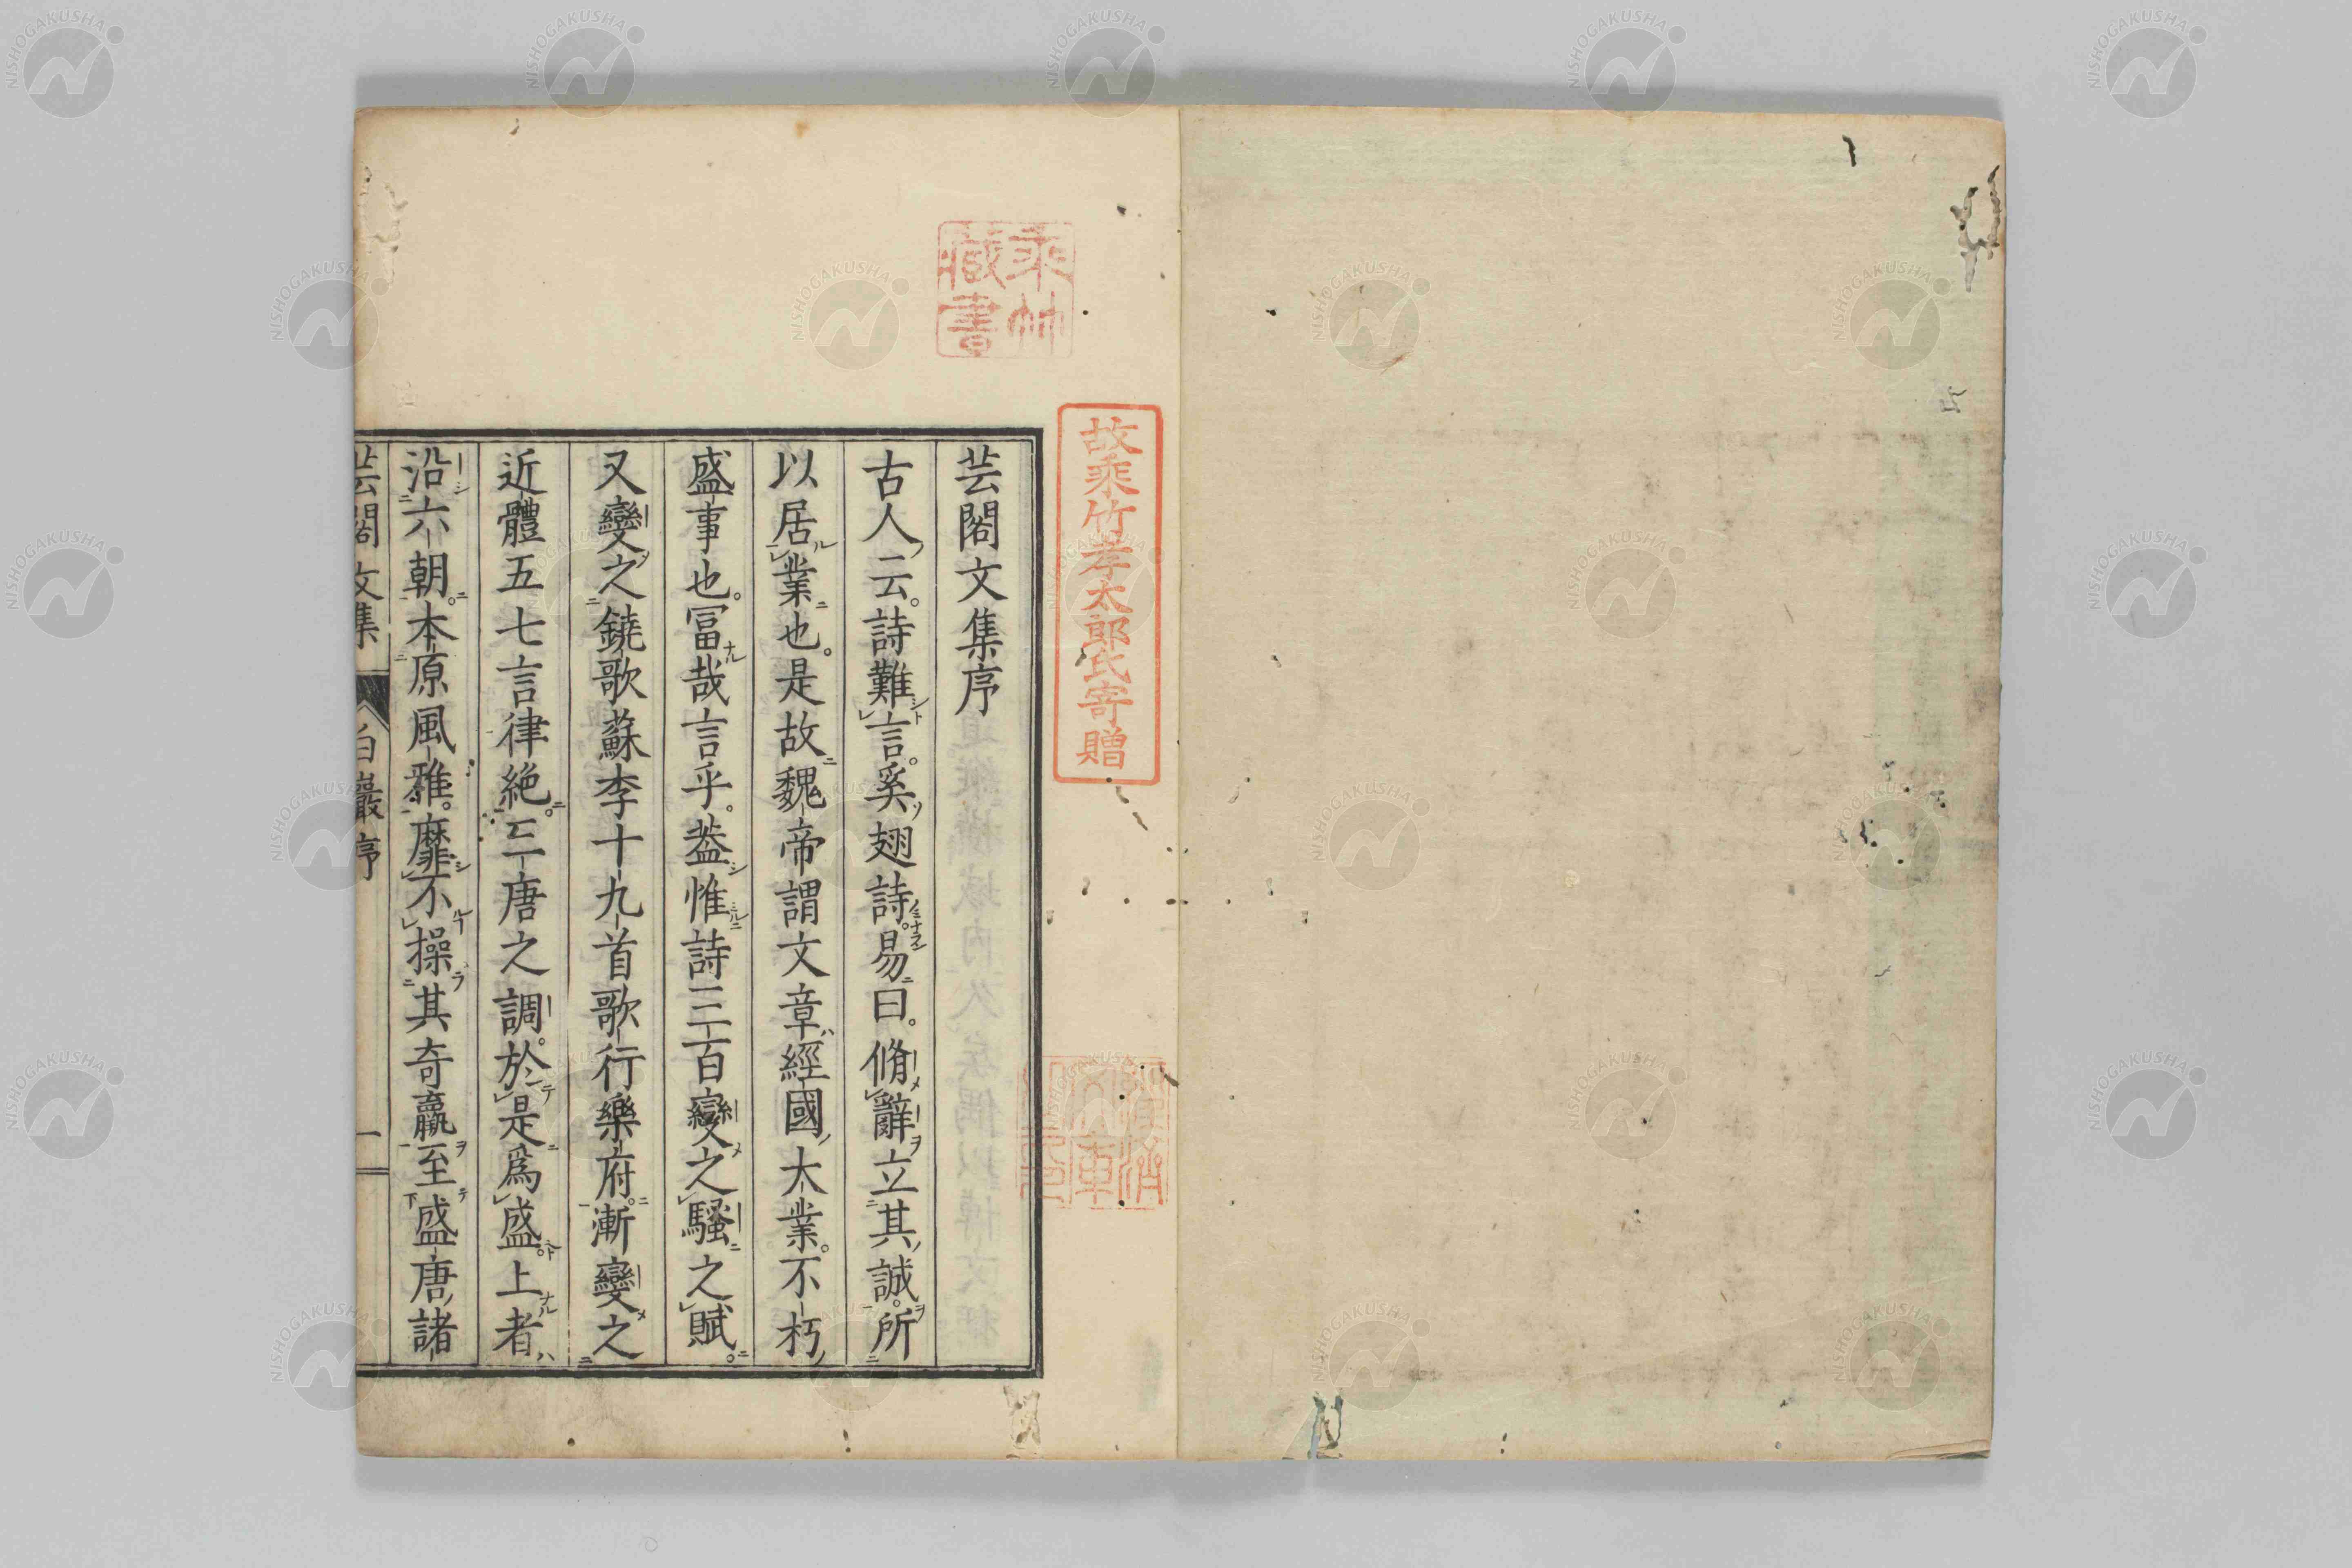 芸閣文集序
古人云。詩難言。奚翅詩。易曰。脩辭立其誠。所
以居業也。是故魏帝謂文章經國大業。不朽
盛事也。冨哉言乎。葢惟詩三百變之騷之賦。
又變之鐃歌蘇李十九首歌行樂府。漸變之
近體五七言律絶。三唐之調。於是爲盛。上者
沿六朝。本原風雅。靡不操其奇贏。至盛唐諸
芸閣文集 白巖序 一
乘竹
藏書
故乘竹孝太郎氏寄贈
NISHOGAKUSHA